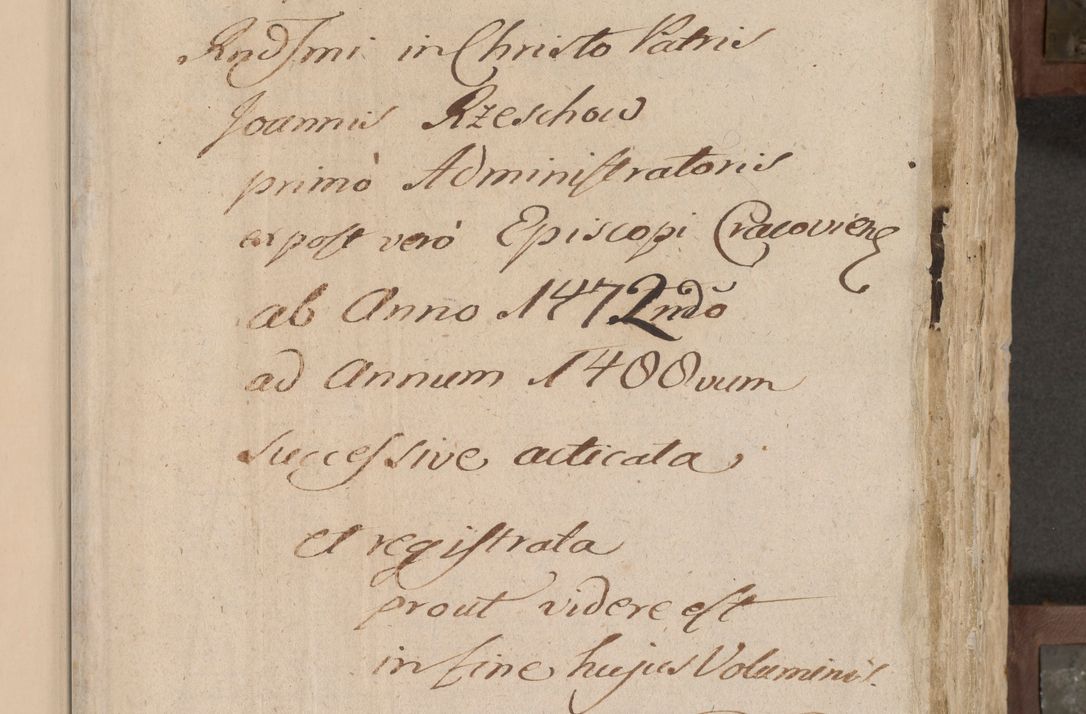 Rndſmi in Christo Patris
Joannis Rzeschow
primò Adminiſtratoris
ex post verò Episcopi Cracovien
ab Anno 1472ndŏ
ad Annum 1488vum
succeſsive acticata
et regiſtrata
prout videre eſt
in fine hujus Voluminis.